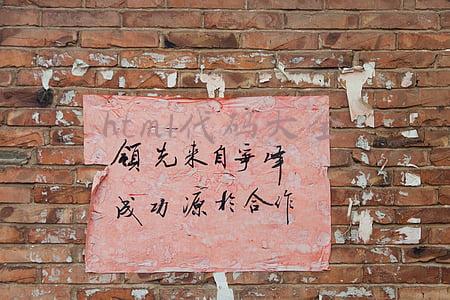 html代码大全
领先来自争峰
成功源於合作